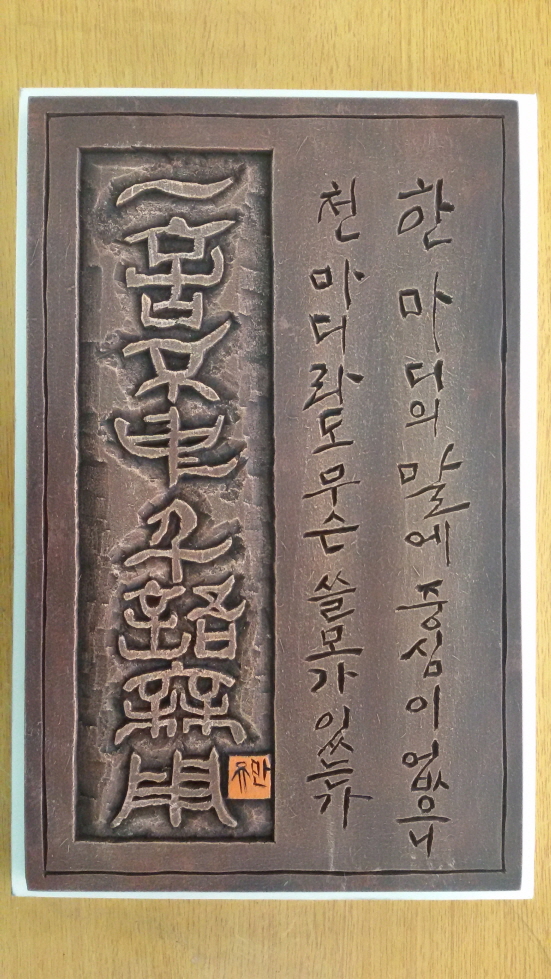 한 마디의 말에 중심이 없으니
천 마디라도 무슨 쓸모가 있는가
一言不中千語無用